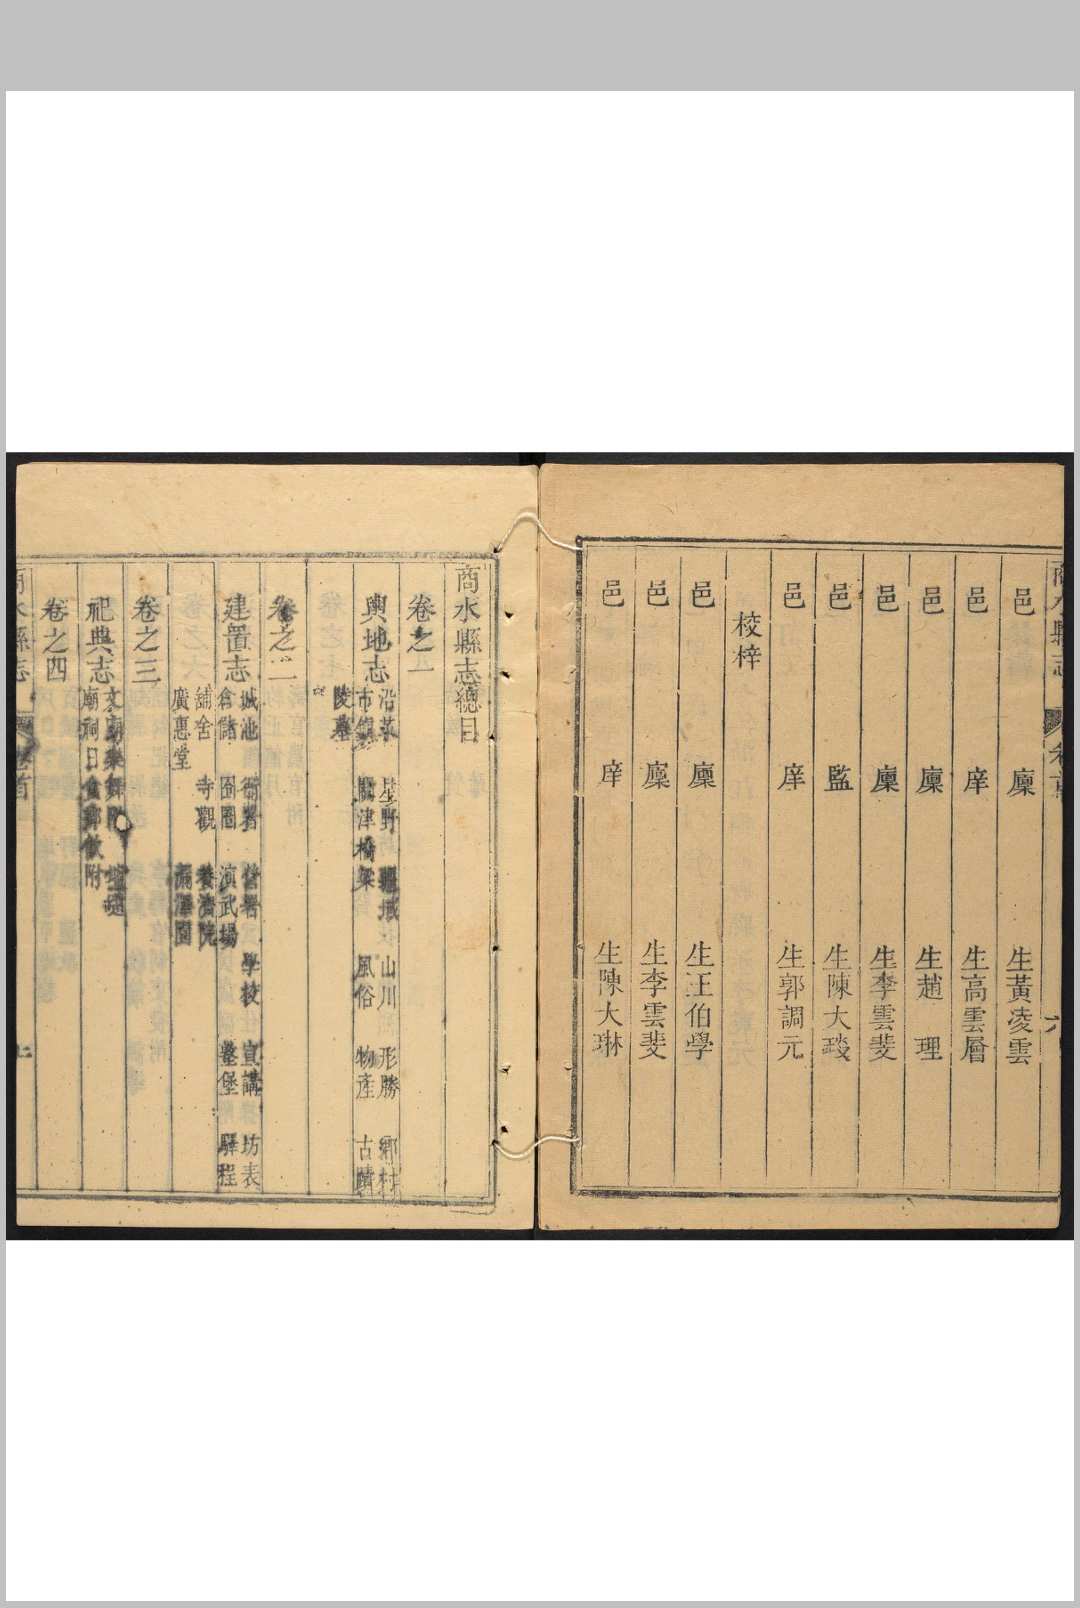 邑廩生黃凌雲
邑庠生高雲層
邑廩生趙理
邑廩生李雲斐
邑監生陳大琰
邑庠生郭調元
校梓
邑廩生王伯學
邑廩生李雲斐
邑庠生陳大琳
商水縣志總目
卷之一
輿地志
沿革 星野 疆域 山川 形勝 鄉村
市鎮 關津橋梁 風俗 物產 古蹟
陵墓
卷之二
建置志
城池 衙署 營署 學校 宣講 坊表
倉儲 囹圄 演武場 墪堡 驛程
舖舍 寺觀 養濟院
廣惠堂 漏澤園
卷之三
祀典志
文廟樂舞附 壇壝
廟祠日食鄉飲附
卷之四
商水縣志 卷首 七